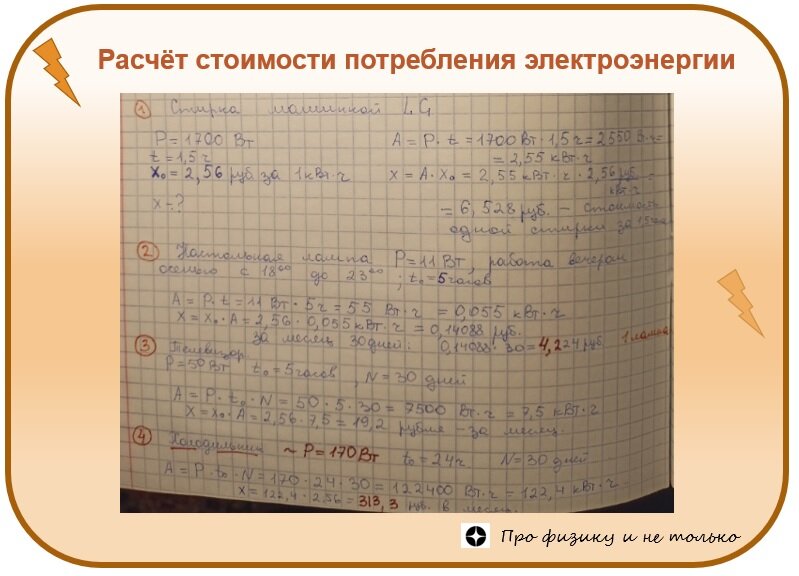 Расчёт стоимости потребления электроэнергии
① Стирка машинкой LG
P = 1700 Вт
t = 1,5 ч
x₀ = 2,56 руб за 1 кВт·ч
x - ?
A = P · t = 1700 Вт · 1,5 ч = 2550 Вт·ч =
= 2,55 кВт·ч
x = A · x₀ = 2,55 кВт·ч · 2,56 руб/кВт·ч =
= 6,528 руб. – стоимость
одной стирки за 1,5 часа
② Настольная лампа P = 11 Вт, работа вечером
осенью с 18⁰⁰ до 23⁰⁰ ; t₀ = 5 часов
A = P · t = 11 Вт · 5 ч = 55 Вт·ч = 0,055 кВт·ч
x = x₀ · A = 2,56 · 0,055 кВт·ч = 0,14088 руб.
за месяц 30 дней: 0,14088 · 30 = 4,224 руб 1 лампа
③ Телевизор
P = 50 Вт t₀ = 5 часов , N = 30 дней
A = P · t₀ · N = 50 · 5 · 30 = 7500 Вт·ч = 7,5 кВт·ч
x = x₀ · A = 2,56 · 7,5 = 19,2 рубля – за месяц.
④ Холодильник ~ P = 170 Вт t₀ = 24 ч N = 30 дней
A = P · t₀ · N = 170 · 24 · 30 = 122400 Вт·ч = 122,4 кВт·ч
x = 122,4 · 2,56 = 313,3 руб. в месяц.
Про физику и не только